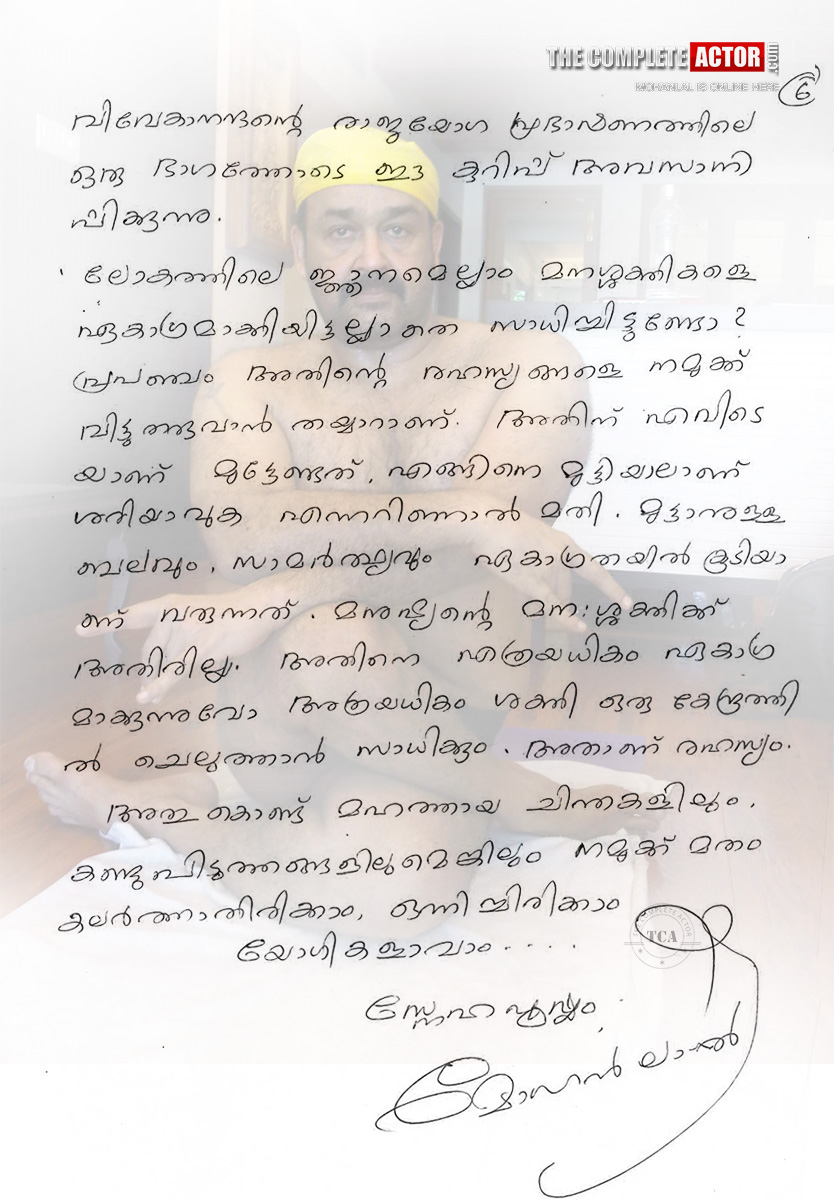 THE COMPLETE ACTOR .com
MOHANLAL IS ONLINE HERE
6
വിവേകാനന്ദന്റെ രാജയോഗ പ്രഭാഷണത്തിലെ
ഒരു ഭാഗത്തോടെ ഈ കുറിപ്പ് അവസാനി
പ്പിക്കുന്നു.
' ലോകത്തിലെ ജ്ഞാനമെല്ലാം മനശ്ശക്തികളെ
ഏകാഗ്രമാക്കിയിട്ടല്ലാതെ സാധിച്ചിട്ടുണ്ടോ ?
പ്രപഞ്ചം അതിന്റെ രഹസ്യങ്ങളെ നമുക്ക്
വിട്ടുതരുവാൻ തയ്യാറാണ്. അതിന് എവിടെ
യാണ് മുട്ടേണ്ടത്, എങ്ങിനെ മുട്ടിയാലാണ്
ശരിയാവുക എന്നറിഞ്ഞാൽ മതി. മുട്ടാനുള്ള
ബലവും, സാമർത്ഥ്യവും ഏകാഗ്രതയിൽ കൂടിയാ
ണ് വരുന്നത്. മനുഷ്യന്റെ മനഃശ്ശക്തിക്ക്
അതിരില്ല. അതിനെ എത്രയധികം ഏകാഗ്ര
മാക്കുന്നുവോ അത്രയധികം ശക്തി ഒരു കേന്ദ്രത്തി
ൽ ചെലുത്താൻ സാധിക്കും. അതാണ് രഹസ്യം.
അതുകൊണ്ട് മഹത്തായ ചിന്തകളിലും,
കണ്ടുപിടുത്തങ്ങളിലുമെങ്കിലും നമുക്ക് മതം
കലർത്താതിരിക്കാം, ഒന്നിച്ചിരിക്കാം
യോഗികളാവാം....
TCA
സ്നേഹപൂർവ്വം,
മോഹൻലാൽ